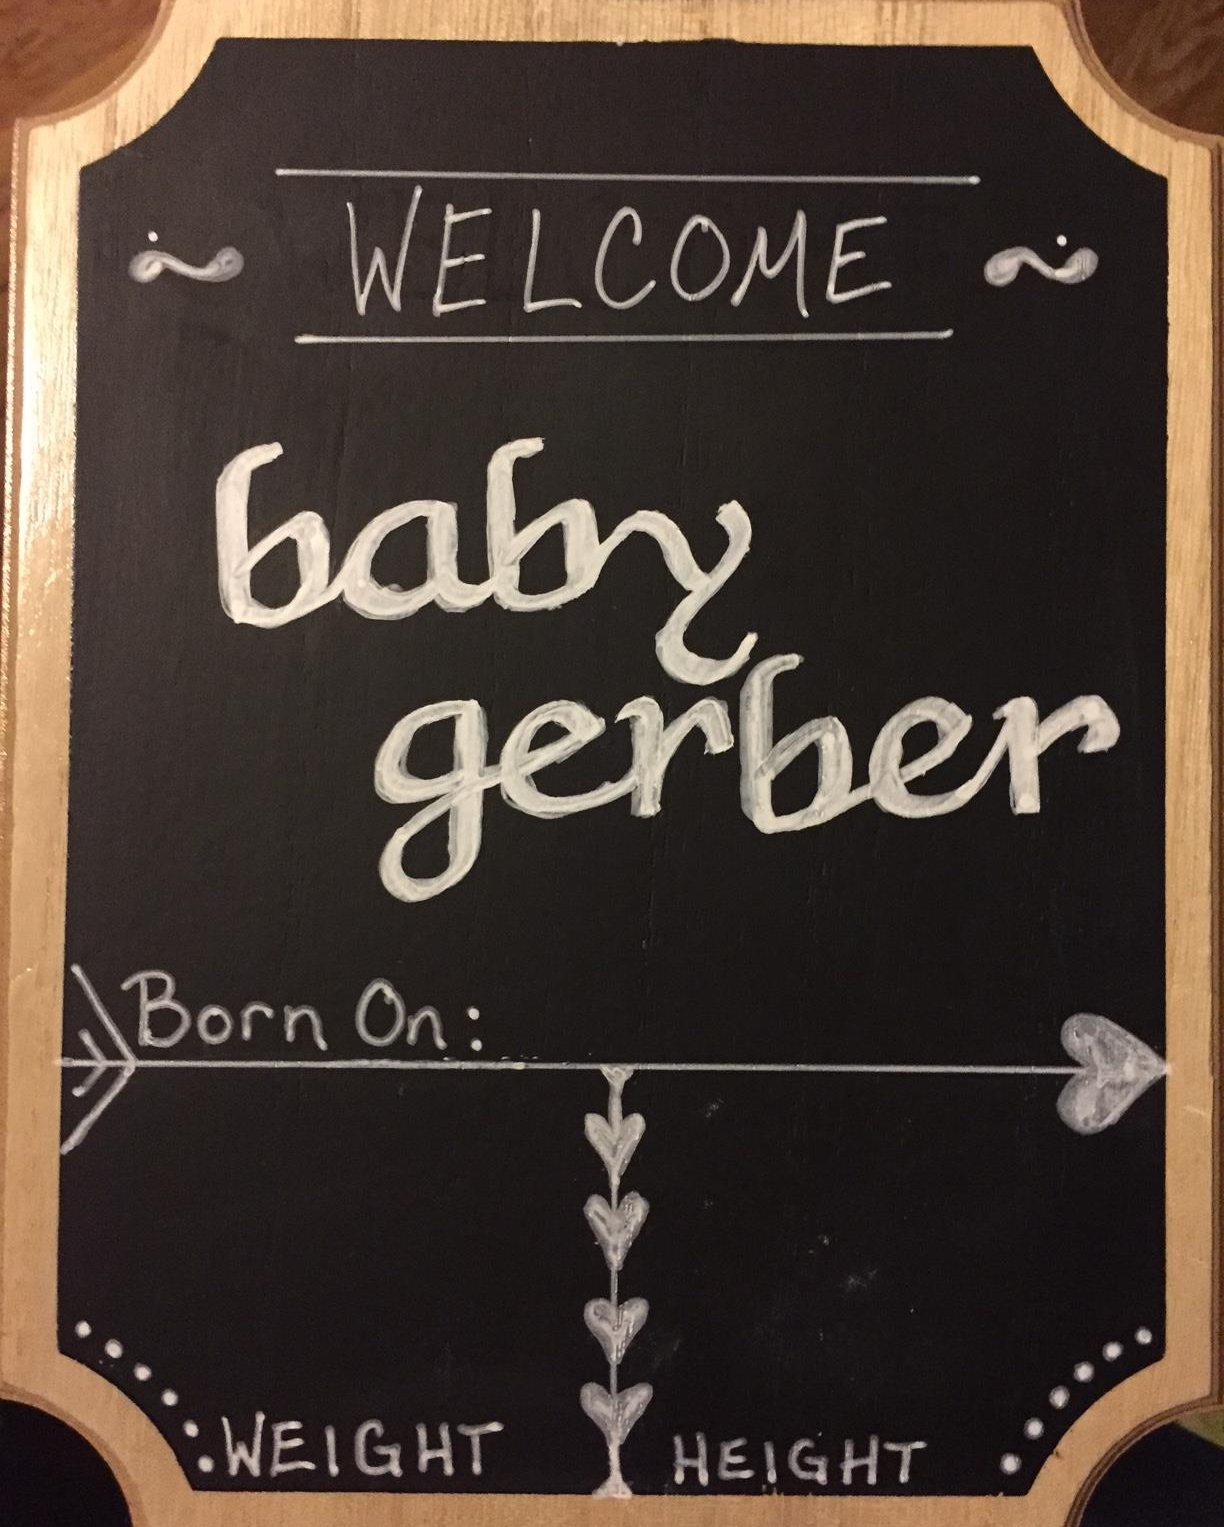 WELCOME
baby
gerber
Born On:
WEIGHT HEIGHT